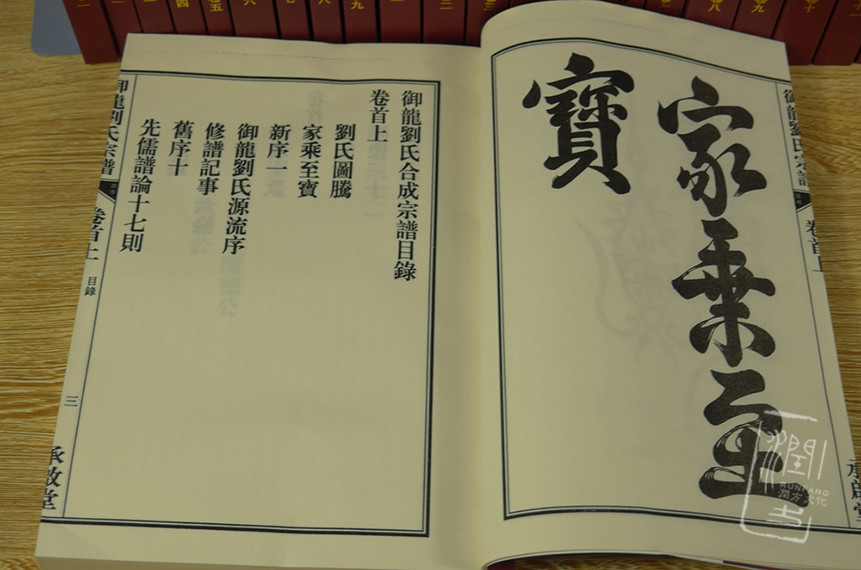 家乘至
寶
御龍劉氏宗譜
卷首上
御龍劉氏合成宗譜目錄
卷首上
劉氏圖騰
家乘至寶
新序一
御龍劉氏源流序
修譜記事
舊序十
先儒譜論十七則
御龍劉氏宗譜
卷首上
目錄
三
承啟堂
潤方文化